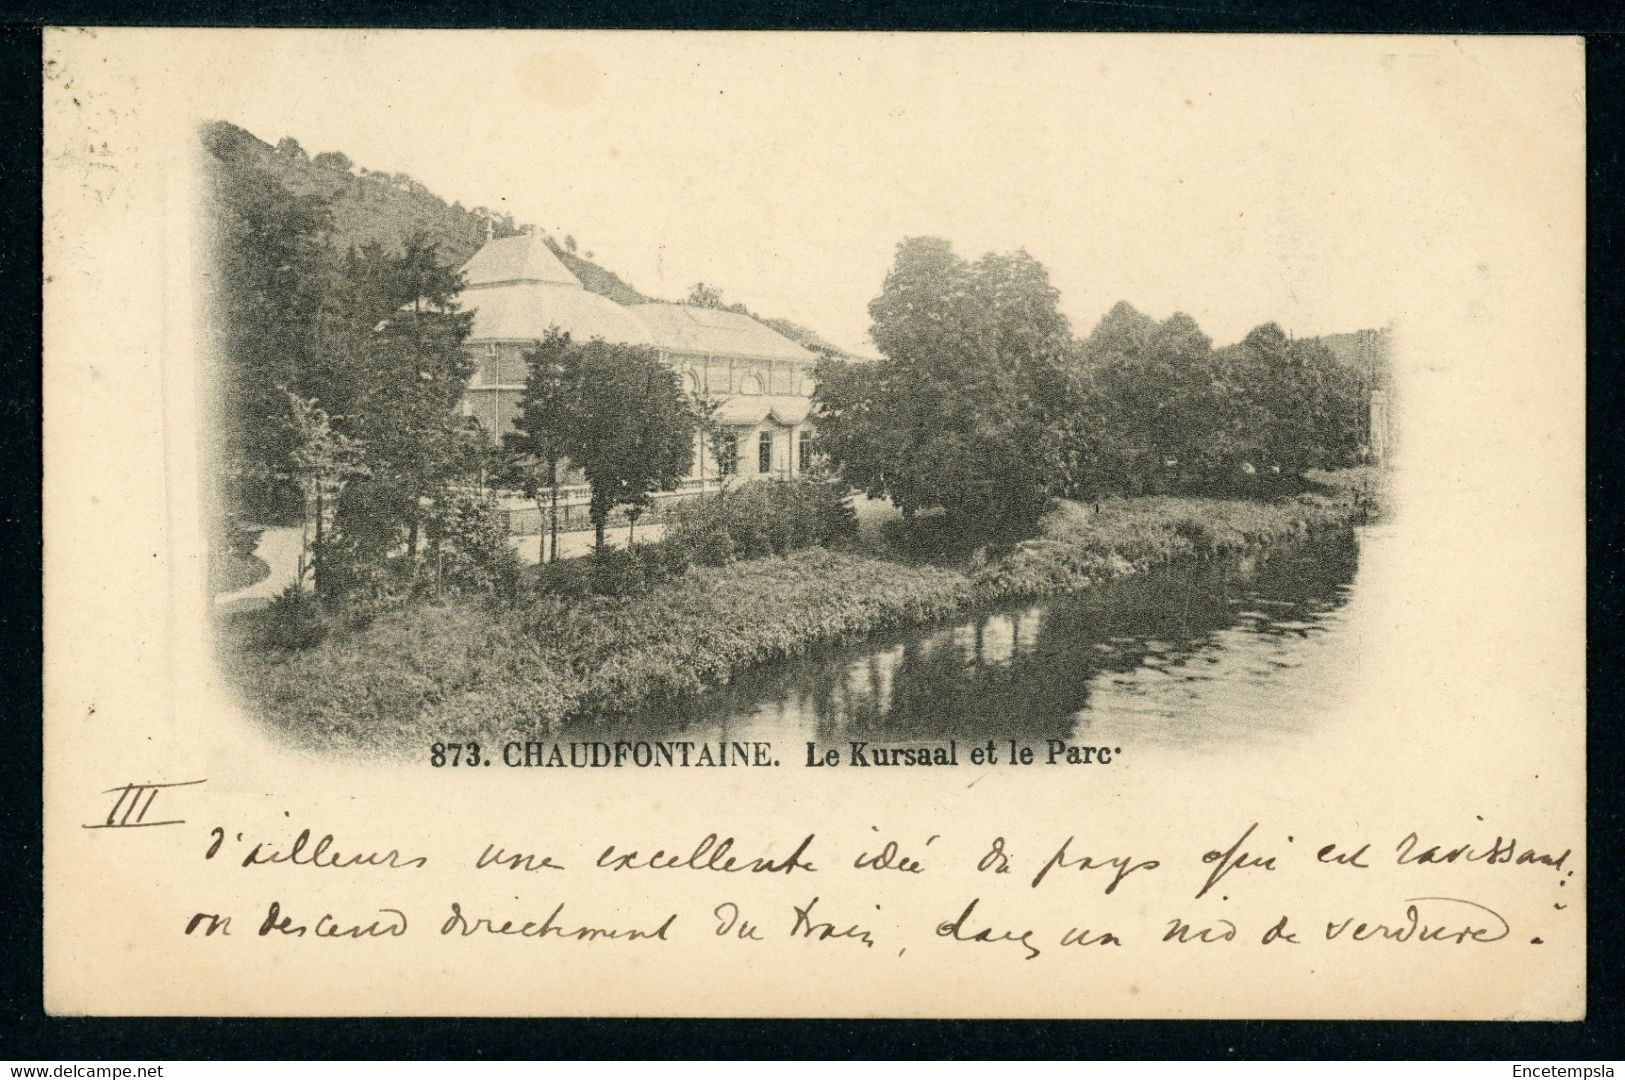 873. CHAUDFONTAINE. Le Kursaal et le Parc.
III
d'ailleurs une excellente idée du pays qui est ravissant:
on descend directement du train, dans un nid de verdure.
www.delcampe.net
Encetempsla